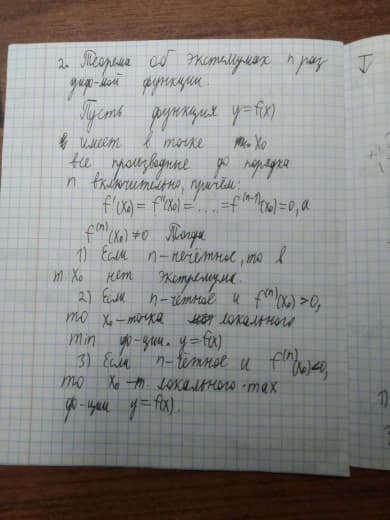 2. Теорема об экстемумах n раз
диф-мой функции.
Пусть функция y=f(x)
имеет в точке x₀
все производные до порядка
n включительно, причём:
f'(x₀)=f''(x₀)=....=f⁽ⁿ⁻¹⁾(x₀)=0, а
f⁽ⁿ⁾(x₀)≠0 Тогда
1) Если n-нечётное, то в
т. x₀ нет экстремума.
2) Если n-чётное и f⁽ⁿ⁾(x₀)>0,
то x₀-точка локального
min ф-ции. y=f(x)
3) Если n-чётное и f⁽ⁿ⁾(x₀)<0,
то x₀-т. локального max
ф-ции y=f(x).
1)